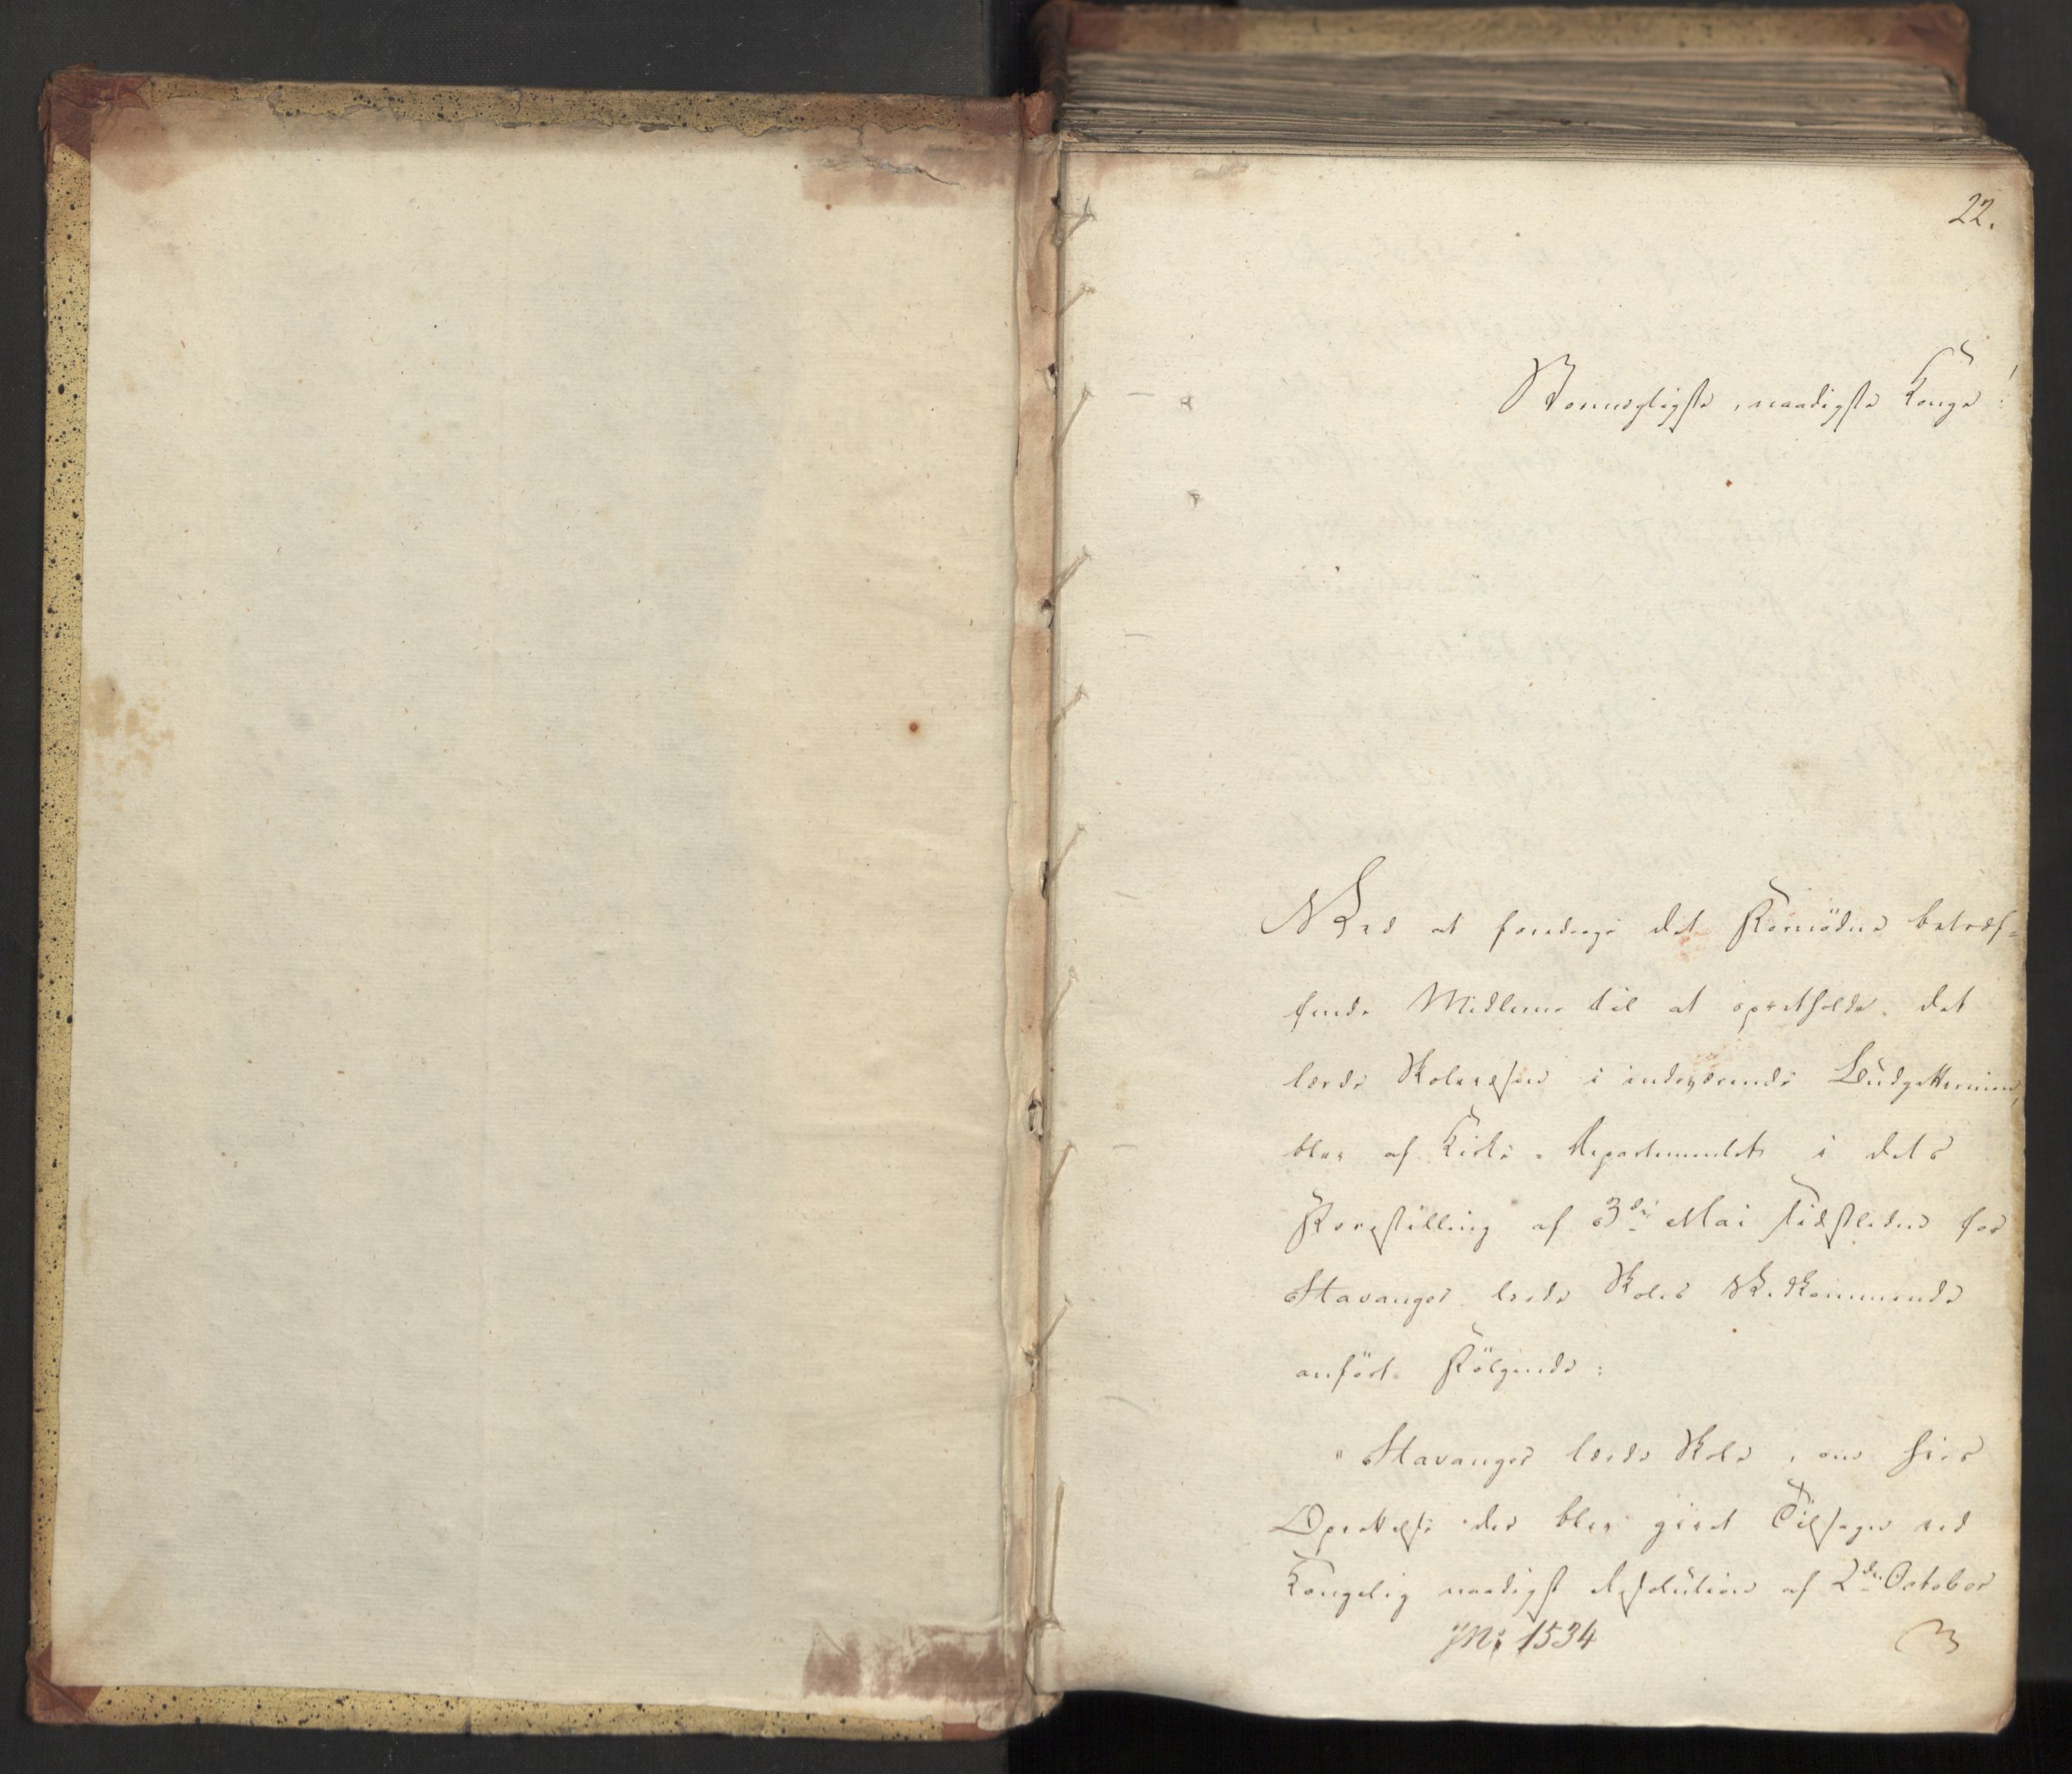 22.
Stormægtigste, naadigste Konge!
Ved at foredrage det Fornödne betræf-
fende Midlerne til at opretholde det
lærde Skolevæsen i indeværende Budgettermin,
blev af Kirke-Departementet i dets
Forestilling af 3die Mai sidstleden for
Stavanger lærde Skoles Vedkommende
anfört Fölgende:
"Stavanger lærde Skole, om hvis
Oprettelse der blev givet Tilsagn ved
Kongelig naadigst Resolution af 2den October
JN: 1534